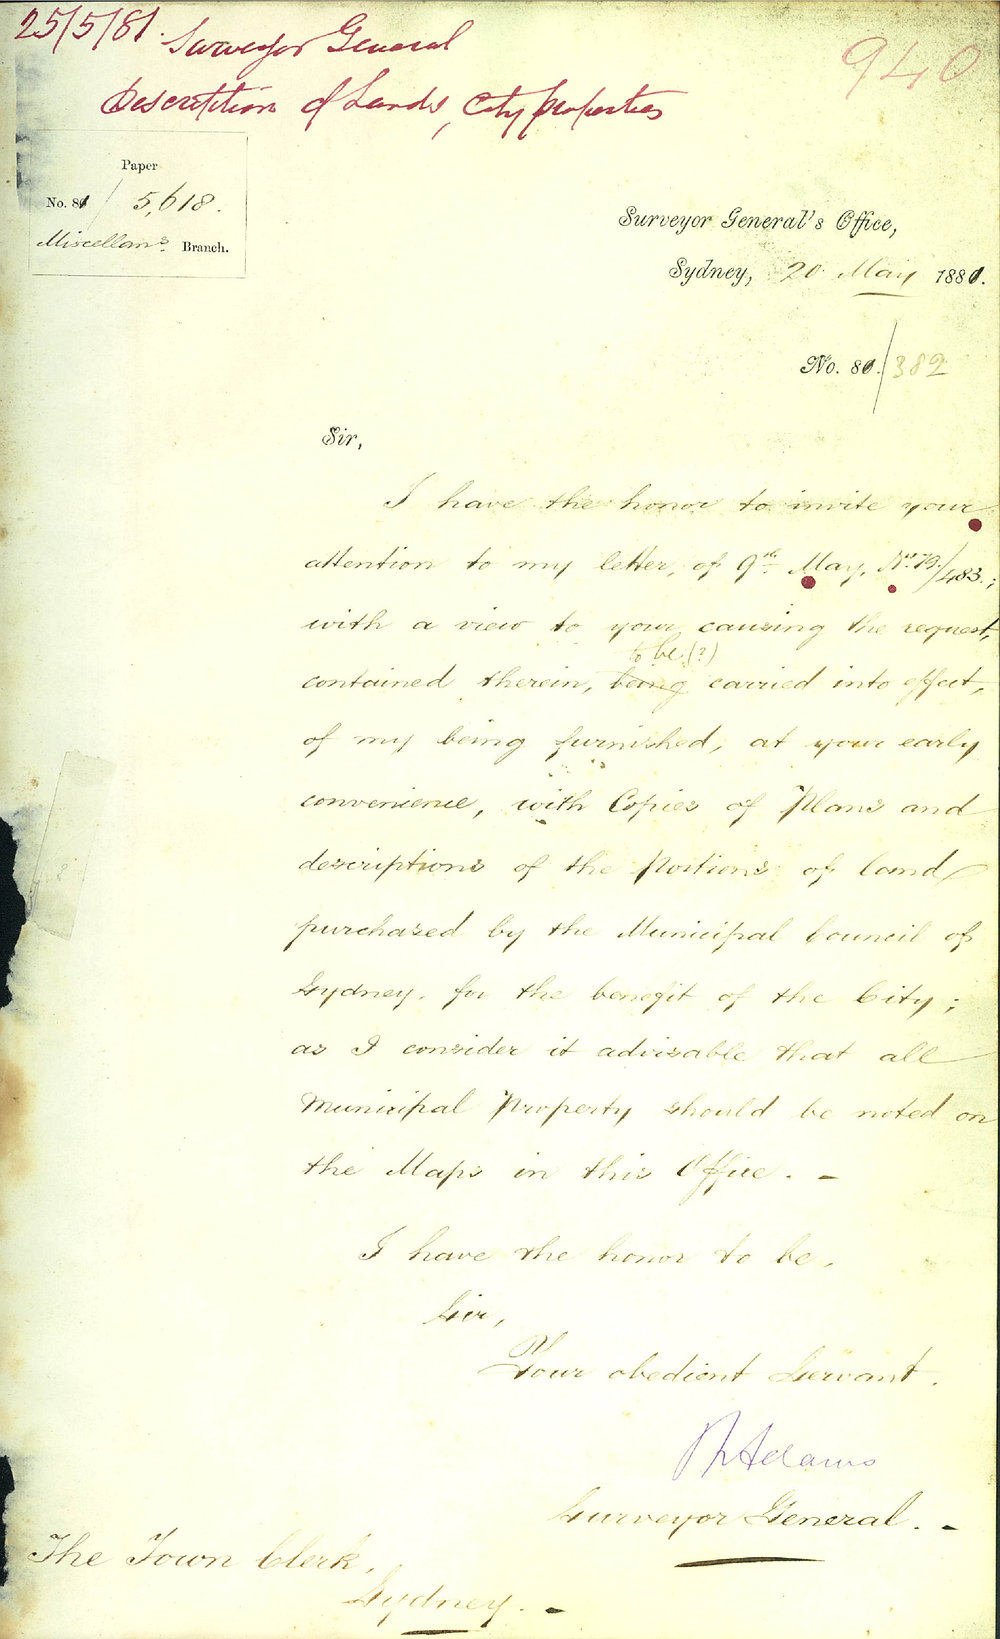 25/5/81. Surveyor General
Description of Lands, City properties
940
Paper
No. 81/5,618.
Miscellans. Branch.
Surveyor General's Office,
Sydney, 20 May 1881.
No. 81/382
Sir,
I have the honor to invite your
attention to my letter, of 9th May, No. 79/483.;
with a view to your causing the request,
to be (?)
contained therein, being carried into effect,
of my being furnished, at your early
convenience, with Copies of Plans and
descriptions of the Portions of land
purchased by the Municipal Council of
Sydney, for the benefit of the City;
as I consider it advisable that all
Municipal Property should be noted on
the Maps in this Office. -
I have the honor to be,
Sir,
Your obedient Servant.
Adams
Surveyor General. -
The Town Clerk,
Sydney. -